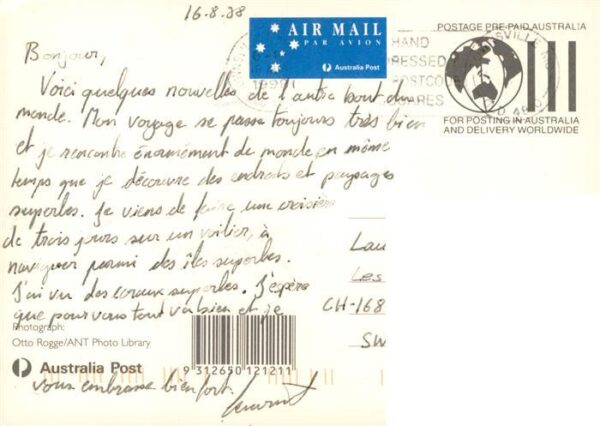 16.8.98
AIR MAIL
PAR AVION
Australia Post
POSTAGE PRE-PAID AUSTRALIA
HAND
POSTCODE
FOR POSTING IN AUSTRALIA
AND DELIVERY WORLDWIDE
Bonjour,
Voici quelques nouvelles de l'autre bout du
monde. Mon voyage se passe toujours très bien
et je rencontre énormément de monde en même
temps que je découvre des endroits et paysages
superbes. Je viens de faire une croisière
de trois jours sur un voilier, à
naviguer parmi des îles superbes.
J'ai vu des coraux superbes. J'espère
que pour vous tout va bien et je
vous embrasse bien fort.
Lau
Les
CH-168
SW
Photograph:
Otto Rogge/ANT Photo Library
Australia Post
9 312650 121211